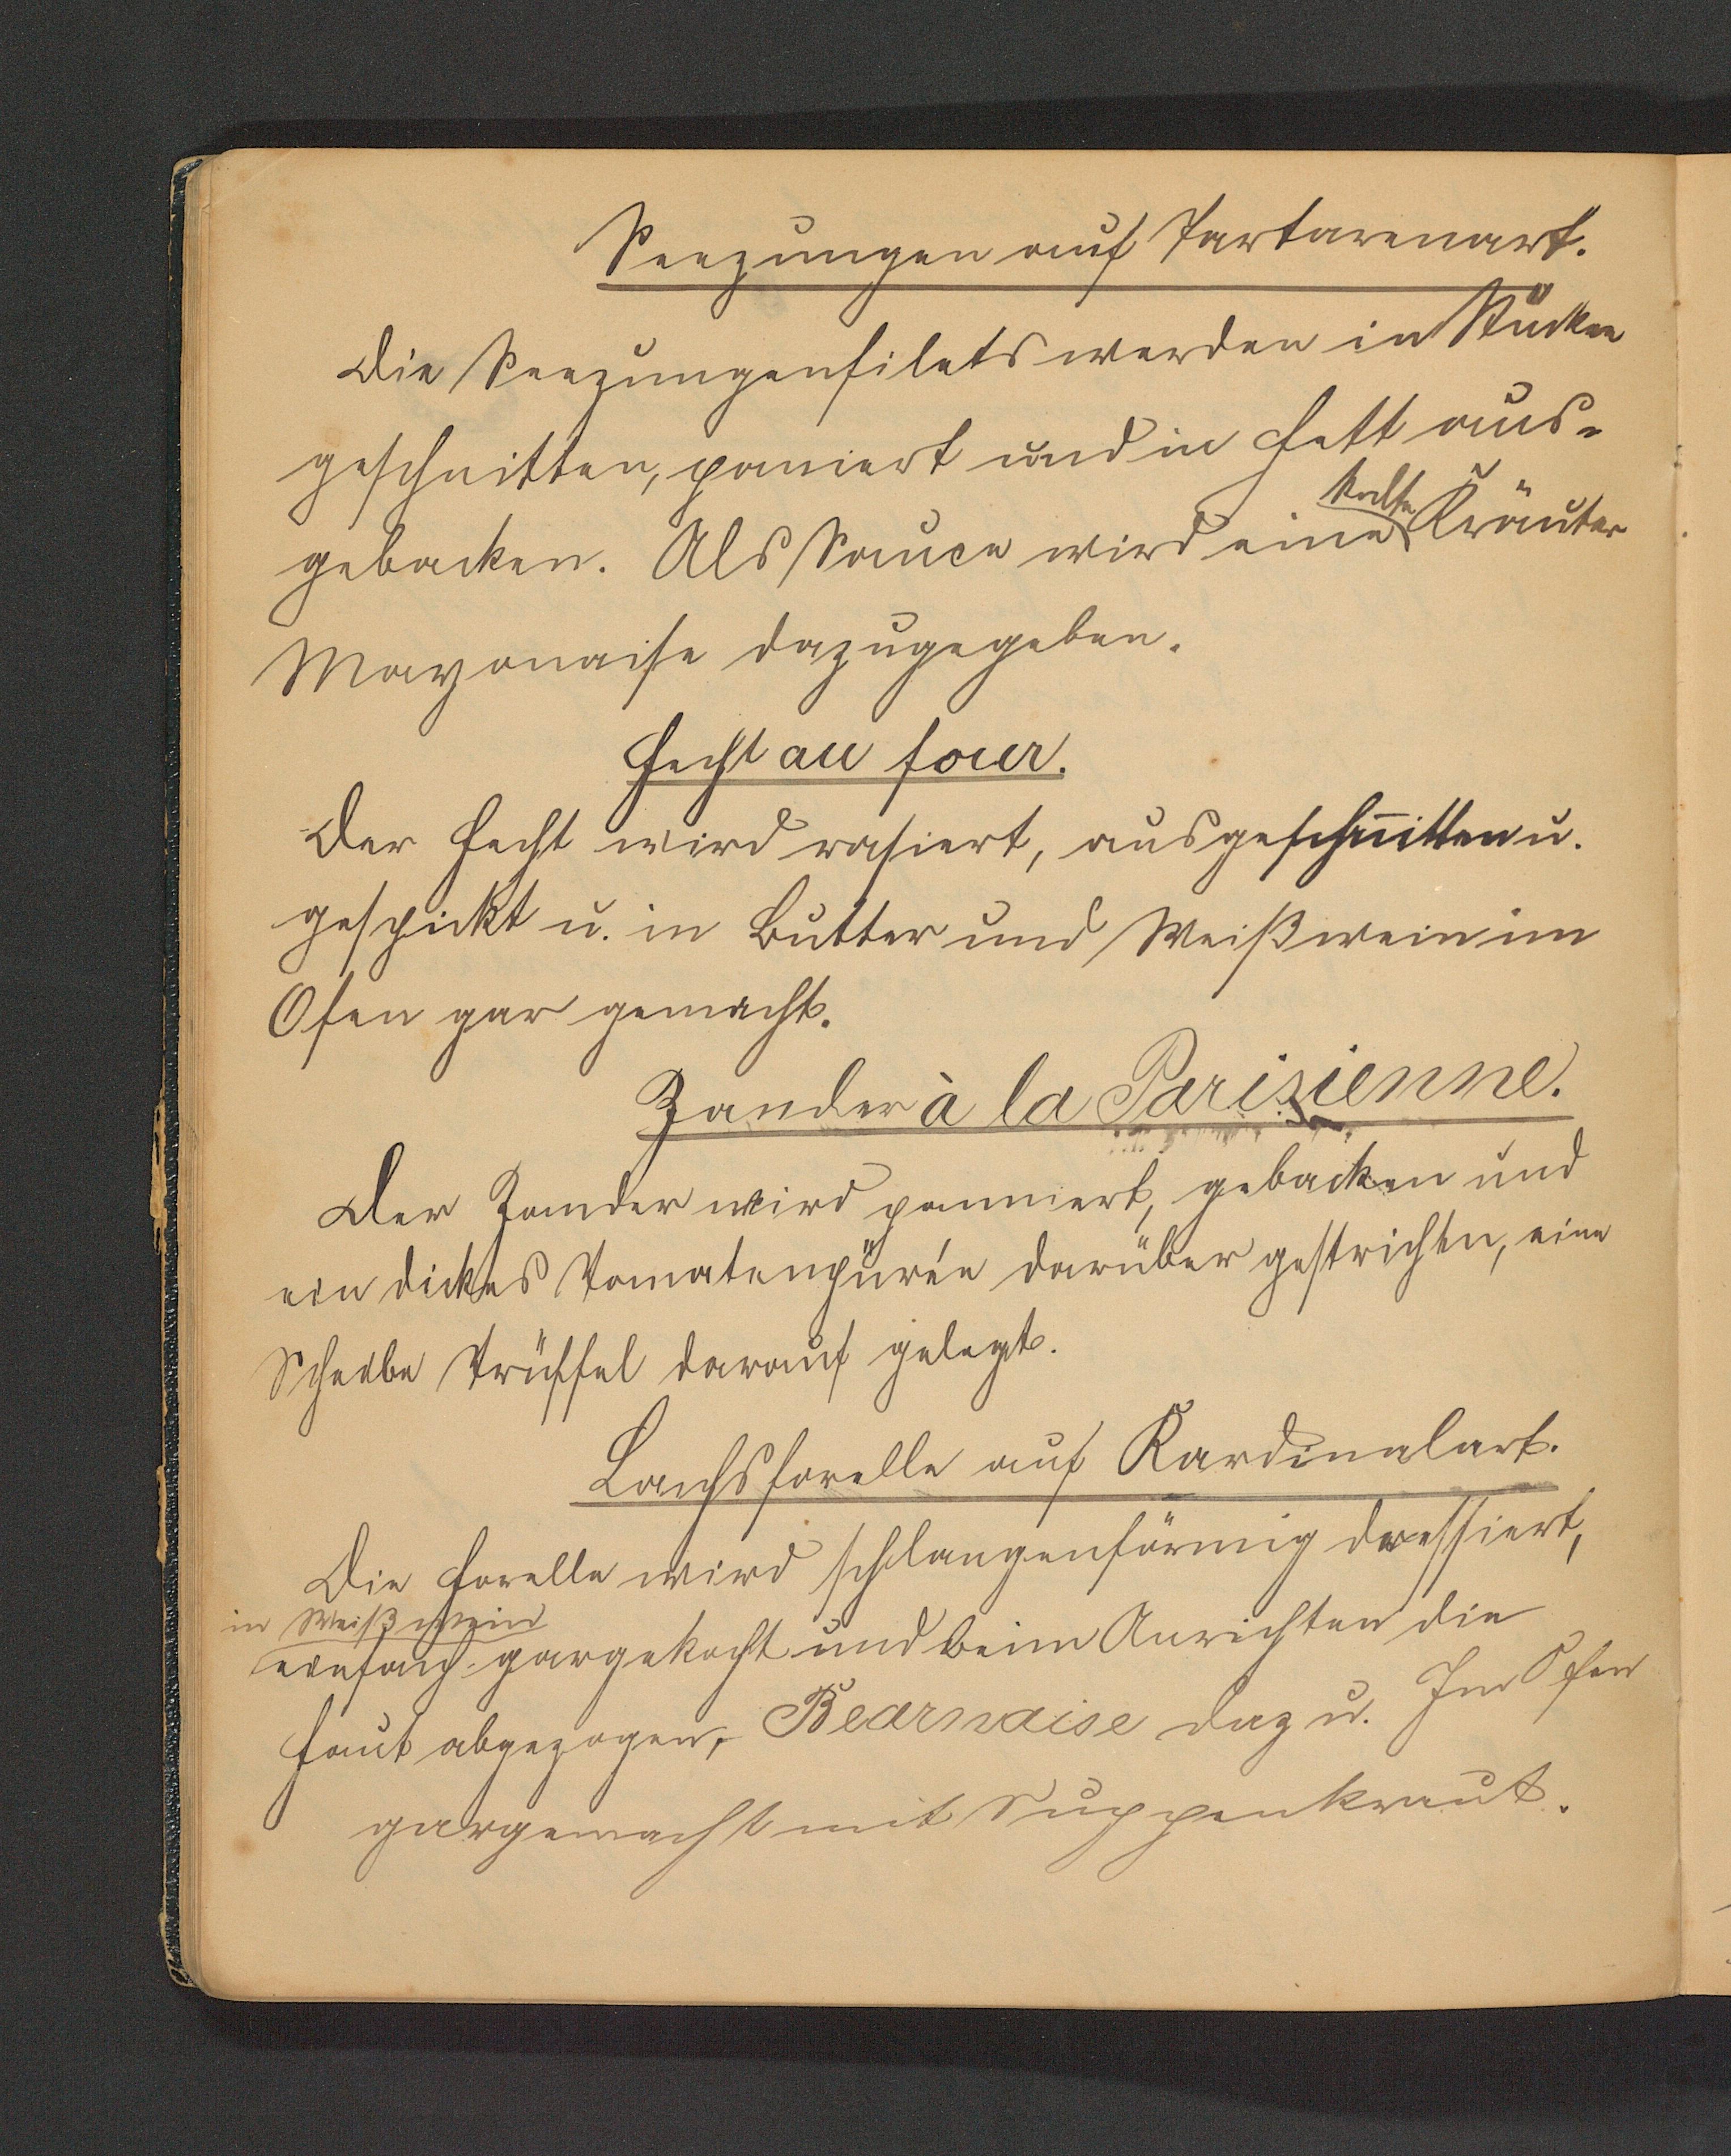 Seezungen auf Tartarenart.
Die Seezungenfilets werden in Stücken
geschnitten, paniert und in Fett aus-
gebacken. Als Sauce wird eine kalte Kräuter
Mayonaise dazugegeben.
Hecht au four.
Der Hecht wird rasiert, ausgeschnitten u.
gespickt u. in Butter und Weißwein im
Ofen gar gemacht.
Zander à la Parisienne.
Der Zander wird panniert, gebacken und
ein dickes Tomatenpürée darüber gestrichen, eine
Scheibe Trüffel darauf gelegt.
Lachsforelle auf Kardinalart.
Die Forelle wird schlangenförmig dressiert,
in Weißwein
einfach gargekocht und beim Anrichten die
Haut abgezogen, Bearnaise dazu. Im Ofen
gargemacht mit Suppenkraut.